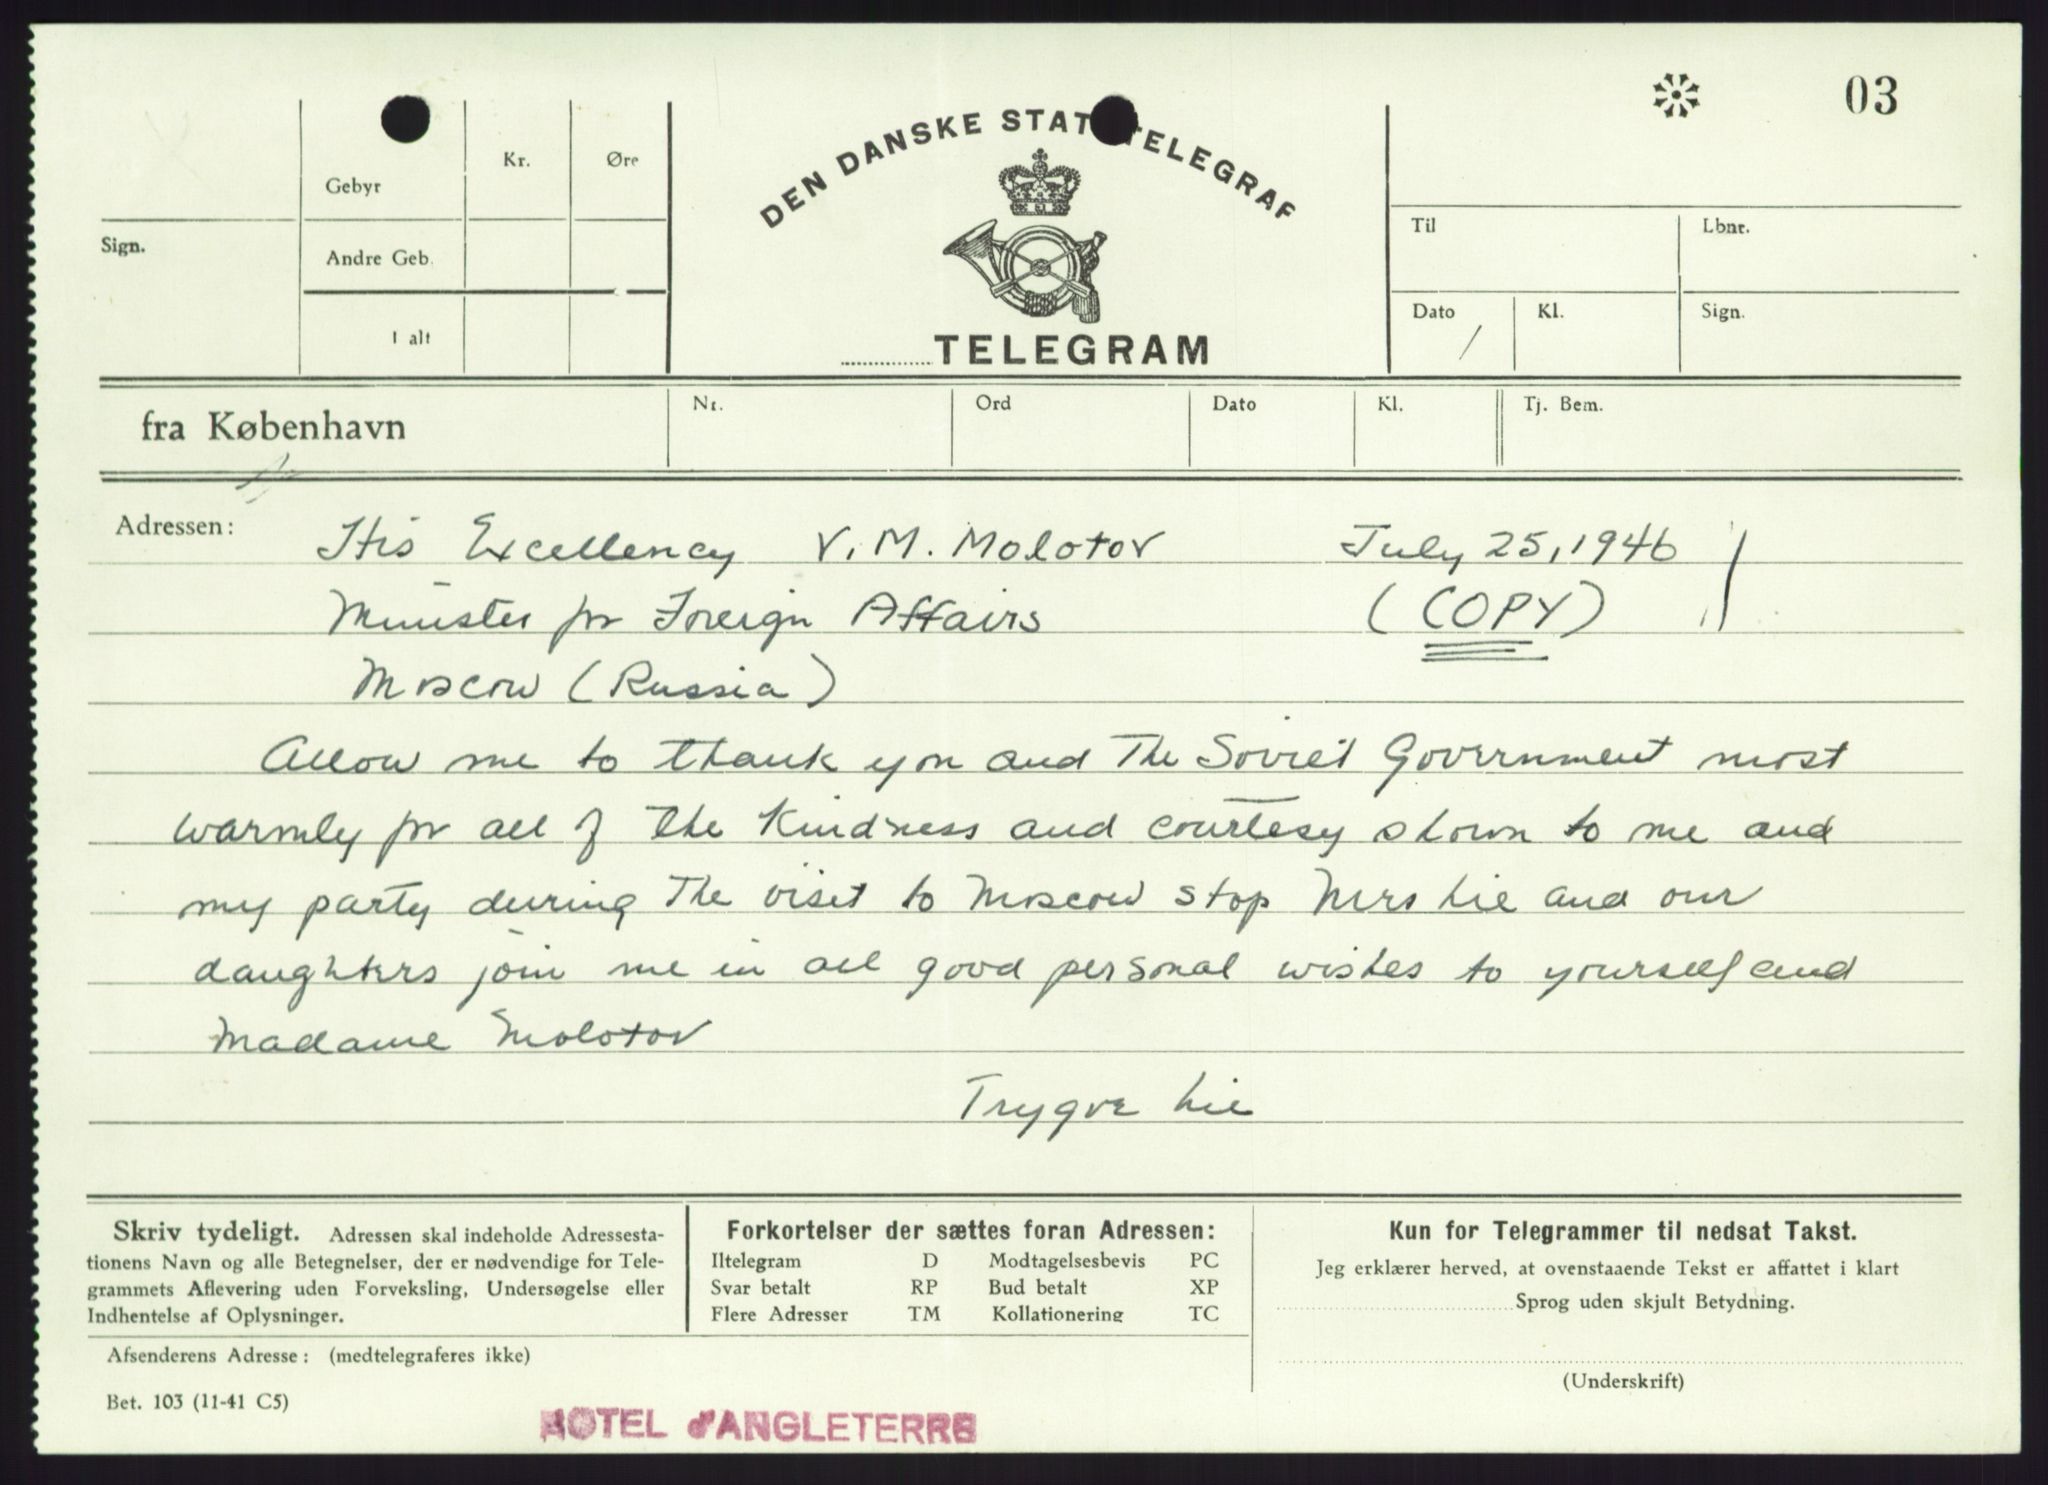 03
Gebyr Kr. Øre
Sign.
Andre Geb.
I alt
DEN DANSKE STATSTELEGRAF
TELEGRAM
Til Lbnr.
Dato / Kl. Sign.
fra København Nr. Ord Dato Kl. Tj. Bem.
Adressen: His Excellency V. M. Molotov July 25, 1946
Minister for Foreign Affairs (COPY)
Moscow (Russia)
Allow me to thank you and the Soviet Government most
warmly for all of the kindness and courtesy shown to me and
my party during the visit to Moscow stop Mrs Lie and our
daughters join me in all good personal wishes to yourself and
Madame Molotov
Trygve Lie
Skriv tydeligt. Adressen skal indeholde Adressesta-
tionens Navn og alle Betegnelser, der er nødvendige for Tele-
grammets Aflevering uden Forveksling, Undersøgelse eller
Indhentelse af Oplysninger.
Forkortelser der sættes foran Adressen:
Iltelegram D Modtagelsesbevis PC
Svar betalt RP Bud betalt XP
Flere Adresser TM Kollationering TC
Kun for Telegrammer til nedsat Takst.
Jeg erklærer herved, at ovenstaaende Tekst er affattet i klart
Sprog uden skjult Betydning.
(Underskrift)
Afsenderens Adresse: (medtelegraferes ikke)
Bet. 103 (11-41 C5)
HOTEL d'ANGLETERRE